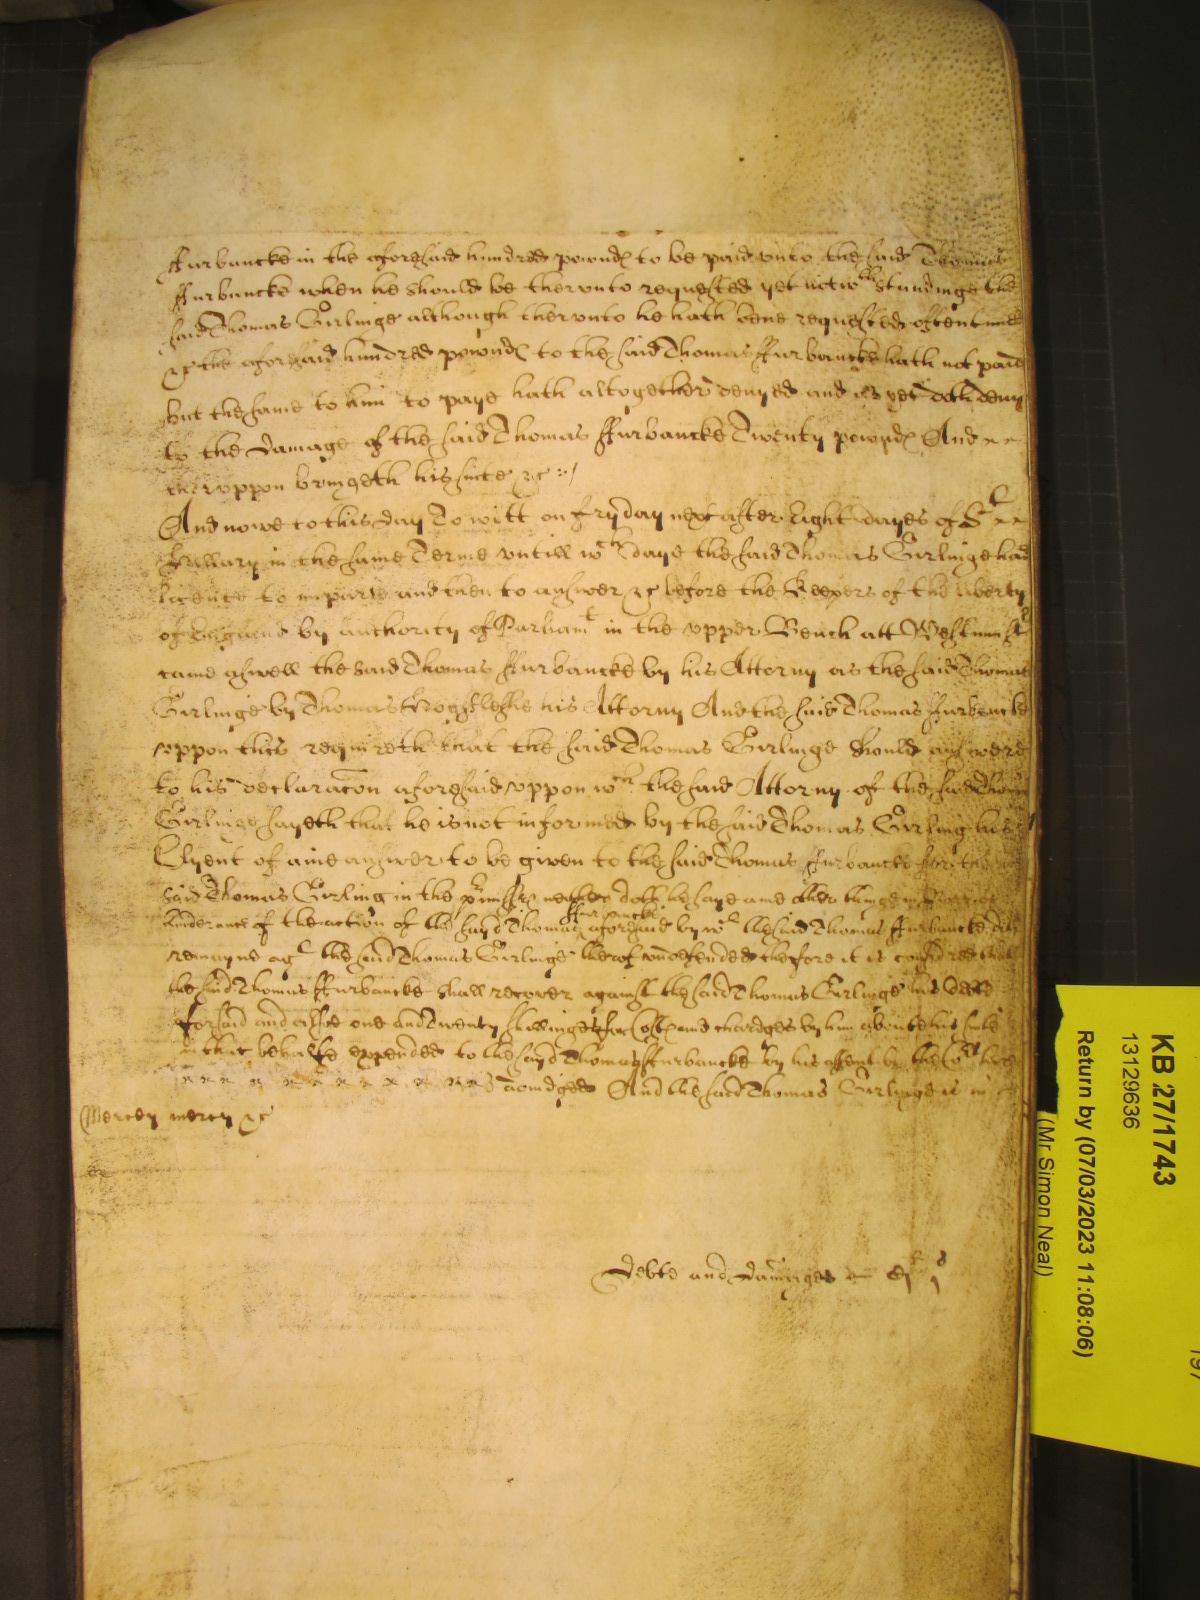 ffurbancke in the aforesaid hundred pownds to be paid vnto the said Thomas
ffurbancke when he should be thervnto requested yet notwthstandinge the
said Thomas Girlinge although thervnto he hath bene requested oftentimes
&c the aforesaid hundred pownds to the said Thomas ffurbancke hath not paid
but the same to him to paye hath altogether denyed and as yet doth deny
to the damage of the said Thomas ffurbancke Twenty pownds And
thervppon bringeth his suite &c
And nowe to this day To witt on fryday next after Eight dayes of St
Hillary in the same Terme vntill wch daye the said Thomas Girlinge had
licence to imparle and then to answer &c before the Keepers of the liberty
of England by authority of Parliamt in the vpper Bench att Westminstr
came aswell the said Thomas ffurbancke by his Attorny as the said Thomas
Girlinge by Thomas his Attorny And the said Thomas ffurbancke
vppon this requireth that the said Thomas Girlinge should answere
to his declaracon aforesaid vppon wch the said Attorny of the said Thomas
Girlinge sayeth that he is not informed by the said Thomas Girling his
Clyent of anie answer to be given to the said Thomas ffurbancke for the
said Thomas Girling in the pmisses neither doth he saye anie other thinge in
hinderance of the action of the sayd Thomas ffurbancke aforesaid by wch the said Thomas ffurbancke doth
remayne agt the said Thomas Girlinge therof vndefended therefore it is considered that
the said Thomas ffurbancke shall recover against the said Thomas Girlinge his Debte
aforsaid and alsoe one and Twenty shillings for Costs and chardges by him about his suite
in that behalfe expended to the sayd Thomas ffurbancke by his assent by the Cort here
adiudged And the said Thomas Girlinge is in
Mercy mercy &c
Debte and Damages
KB 27/1743
13129636
Return by (07/03/2023 11:08:06)
(Mr Simon Neal)